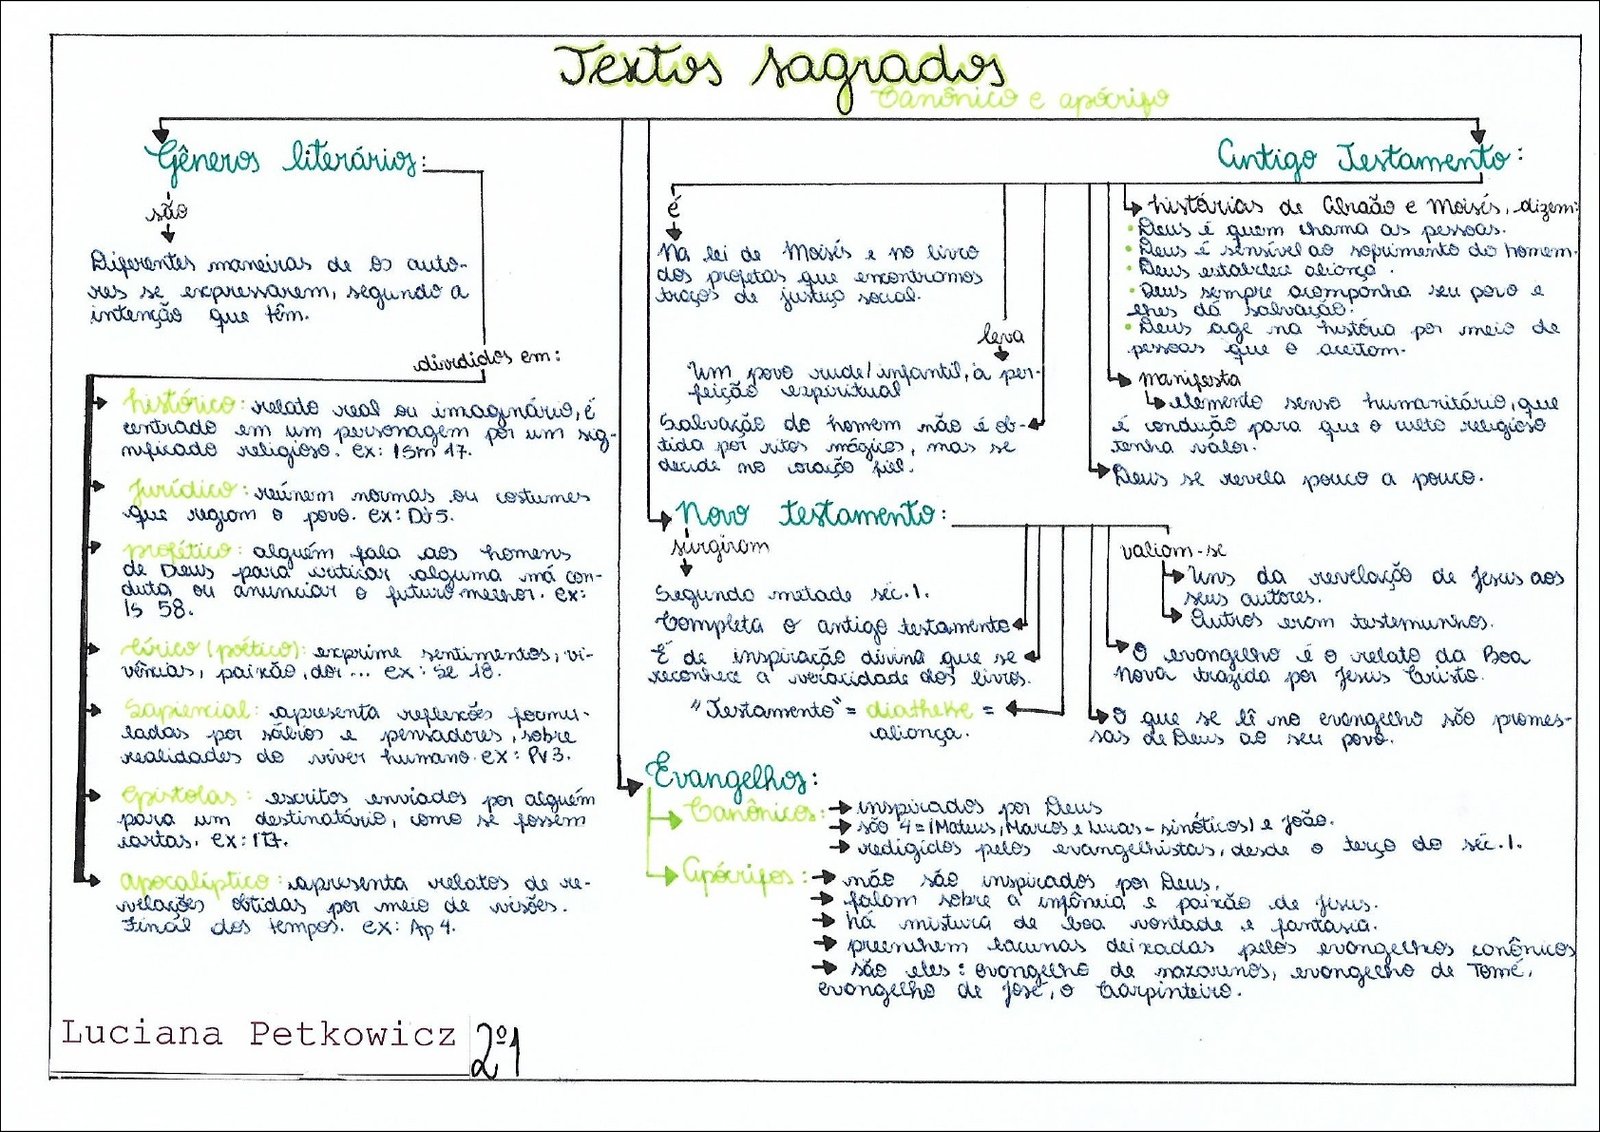 Textos sagrados
Canônico e apócrifo
Gêneros literários:
são
Diferentes maneiras de os auto-
res se expressarem, segundo a
intenção que têm.
divididos em:
histórico: relato real ou imaginário, é
centrado em um personagem por um sig-
nificado religioso. ex: 1Sm 17.
Jurídico: reúnem normas ou costumes
que regiam o povo. ex: Dt 5.
profético: alguém fala aos homens
de Deus para criticar alguma má con-
duta ou anunciar o futuro melhor. ex:
Is 58.
lírico (poético): exprime sentimentos, vi-
vências, paixão, dor... ex: Sl 18.
Sapiencial: apresenta reflexões formu-
ladas por sábios e pensadores, sobre
realidades do viver humano. ex: Pv3.
Epístolas: escritos enviados por alguém
para um destinatário, como se fossem
cartas. ex: 1Tt.
apocalíptico: apresenta relatos de re-
velações obtidas por meio de visões.
Final dos tempos. ex: Ap 4.
Antigo Testamento:
é
Na lei de Moisés e no livro
dos profetas que encontramos
traços de justiça social.
leva
Um povo rude/infantil, à per-
feição espiritual
Salvação do homem não é ob-
tida por ritos mágicos, mas se
decide no coração fiel.
histórias de Abraão e Moisés, dizem:
• Deus é quem chama as pessoas.
• Deus é sensível ao sofrimento do homem.
• Deus estabelece aliança.
• Deus sempre acompanha seu povo e
lhes dá salvação.
• Deus age na história por meio de
pessoas que o aceitam.
manifesta
elemento senso humanitário, que
é condução para que o culto religioso
tenha valor.
Deus se revela pouco a pouco.
Novo testamento:
surgiram
Segunda metade séc. I.
Completa o antigo testamento
É de inspiração divina que se
reconhece a veracidade dos livros.
"Testamento" = diatheke =
aliança.
valiam-se
Uns da revelação de Jesus aos
seus autores.
Outros eram testemunhos.
O evangelho é o relato da Boa
Nova trazida por Jesus Cristo.
O que se lê no evangelho são promes-
sas de Deus ao seu povo.
Evangelhos:
Canônicos:
inspirados por Deus
são 4 = (Mateus, Marcos e Lucas - sinóticos) e João.
redigidos pelos evangelhistas, desde o terço do séc. I.
Apócrifos:
não são inspirados por Deus.
falam sobre a infância e paixão de Jesus.
há mistura de boa vontade e fantasia.
preenchem lacunas deixadas pelos evangelhos canônicos
são eles: evangelho de nazarenos, evangelho de Tomé,
evangelho de José, o Carpinteiro.
Luciana Petkowicz 2º1